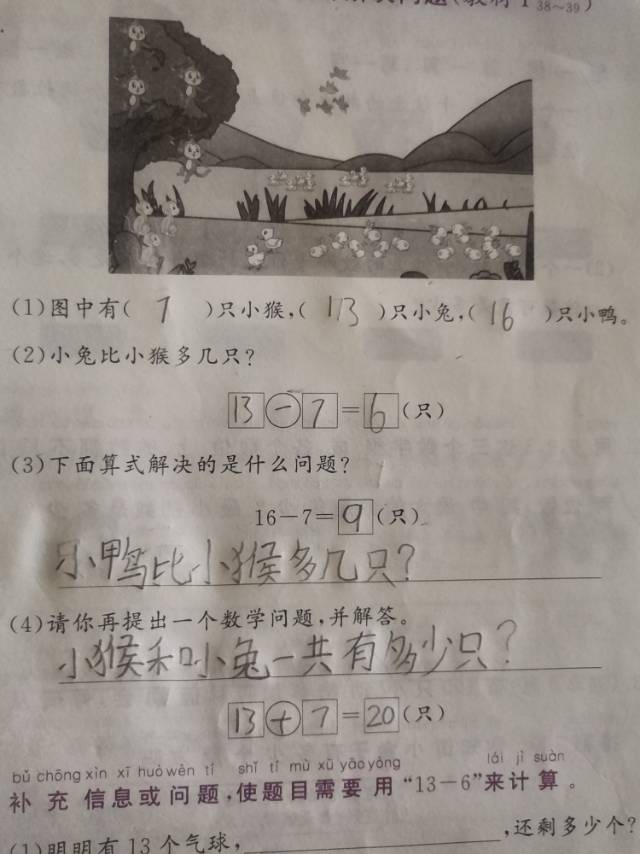 38~39)
(1)图中有( 7 )只小猴,( 13 )只小兔,( 16 )只小鸭。
(2)小兔比小猴多几只?
13-7=6(只)
(3)下面算式解决的是什么问题?
16-7=9(只)
小鸭比小猴多几只?
(4)请你再提出一个数学问题,并解答。
小猴和小兔一共有多少只?
13+7=20(只)
bǔ chōng xìn xī huò wèn tí shǐ tí mù xū yào yòng lái jì suàn
补充信息或问题,使题目需要用“13-6”来计算。
(1)明明有13个气球,,还剩多少个?